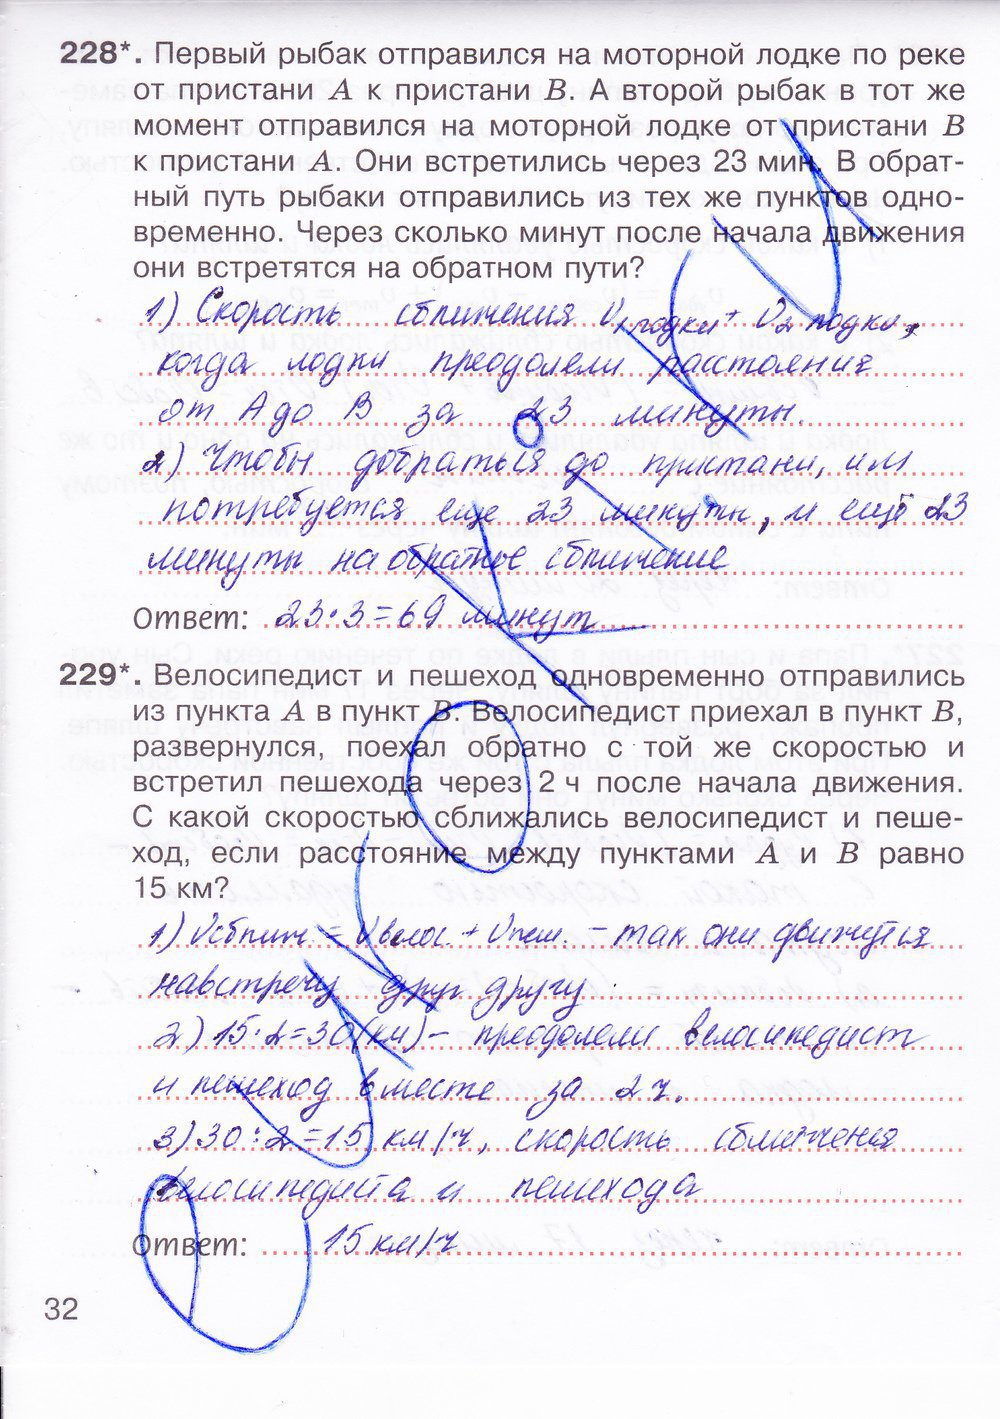 228*. Первый рыбак отправился на моторной лодке по реке
от пристани A к пристани B. А второй рыбак в тот же
момент отправился на моторной лодке от пристани B
к пристани A. Они встретились через 23 мин. В обрат-
ный путь рыбаки отправились из тех же пунктов одно-
временно. Через сколько минут после начала движения
они встретятся на обратном пути?
1) Скорость сближения V1 лодки + V2 лодки,
когда лодки преодолели расстояние
от А до В за 23 минуты.
2) Чтобы добраться до пристани, им
потребуется еще 23 минуты, и ещё 23
минуты на обратное сближение
Ответ: 23·3=69 минут
229*. Велосипедист и пешеход одновременно отправились
из пункта A в пункт B. Велосипедист приехал в пункт B,
развернулся, поехал обратно с той же скоростью и
встретил пешехода через 2 ч после начала движения.
С какой скоростью сближались велосипедист и пеше-
ход, если расстояние между пунктами A и B равно
15 км?
1) Vсближ. = Vвелос. + Vпеш. – так они движутся
навстречу друг другу
2) 15·2=30(км) – преодолели велосипедист
и пешеход вместе за 2 ч.
3) 30:2=15 км/ч, скорость сближения
велосипедиста и пешехода
Ответ: 15 км/ч
32